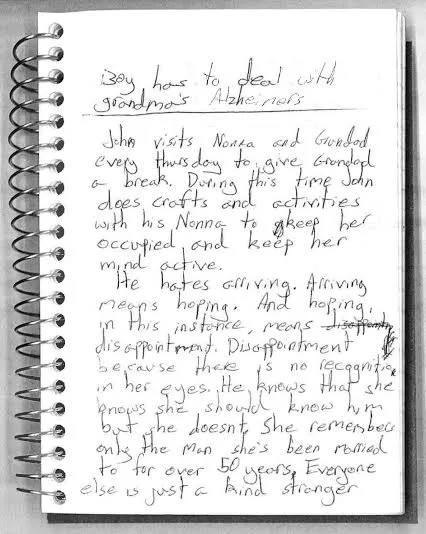 Boy has to deal with
grandma's Alzheimers
John visits Nonna and Grandad
every thursday to give Grandad
a break. During this time John
does crafts and activities
with his Nonna to keep her
occupied and keep her
mind active.
He hates arriving. Arriving
means hoping. And hoping,
in this instance, means disappointm
disappointment. Disappointment
because there is no recognition
in her eyes. He knows that she
knows she should know him
but she doesnt. She remembers
only the man she's been married
to for over 50 years. Everyone
else is just a kind stranger